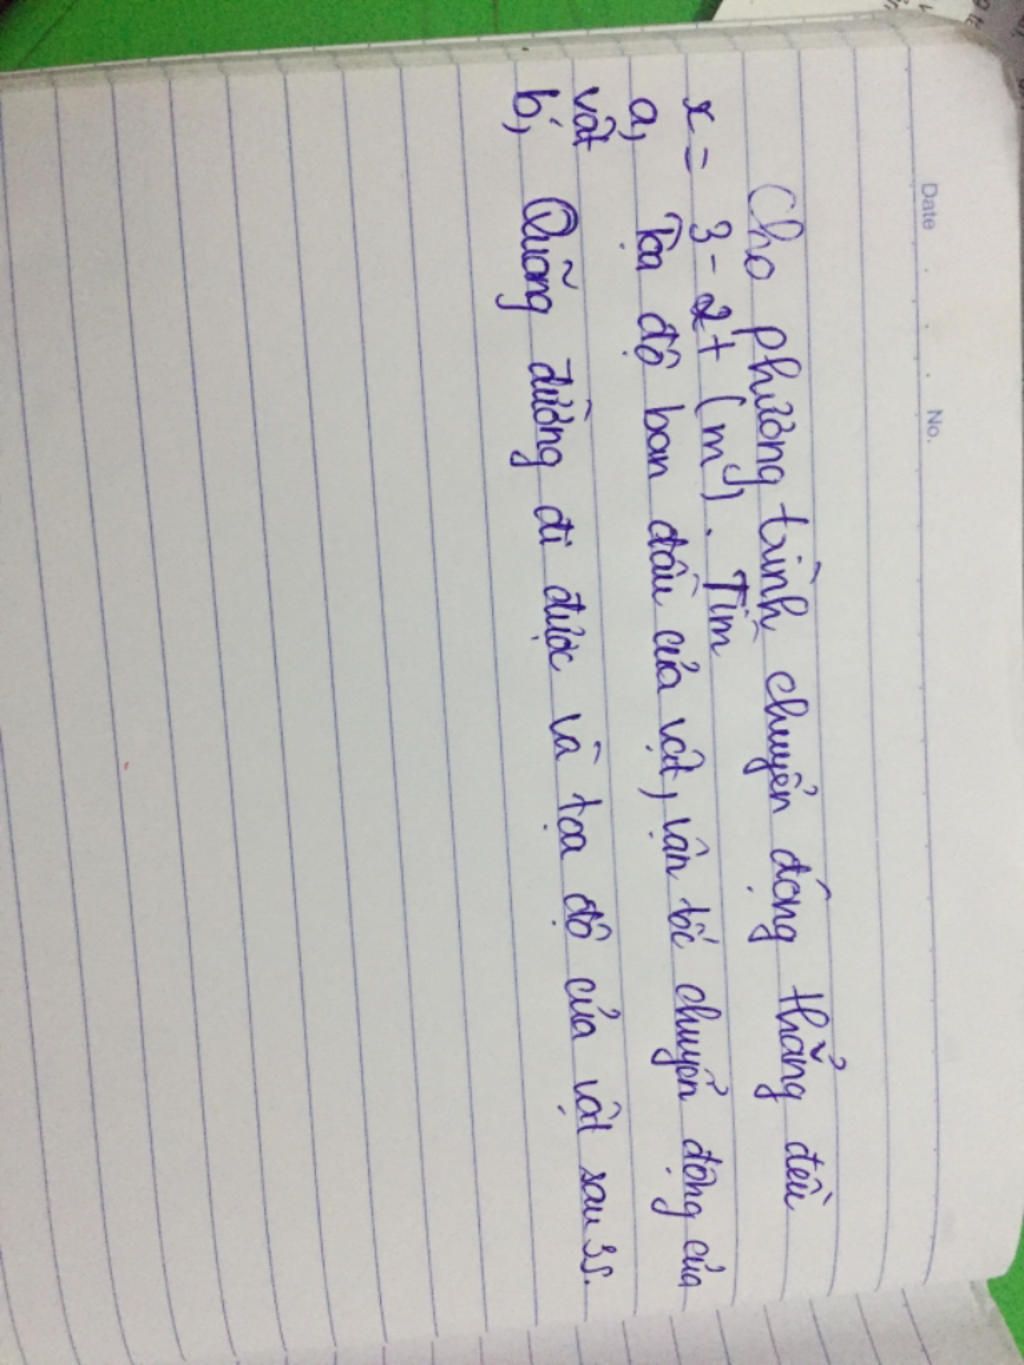 Date . . . No.
Cho phương trình chuyển động thẳng đều
x = 3 - 2t (m). Tìm
a, Tọa độ ban đầu của vật, vận tốc chuyển động của
vật
b, Quãng đường đi được và tọa độ của vật sau 3s.